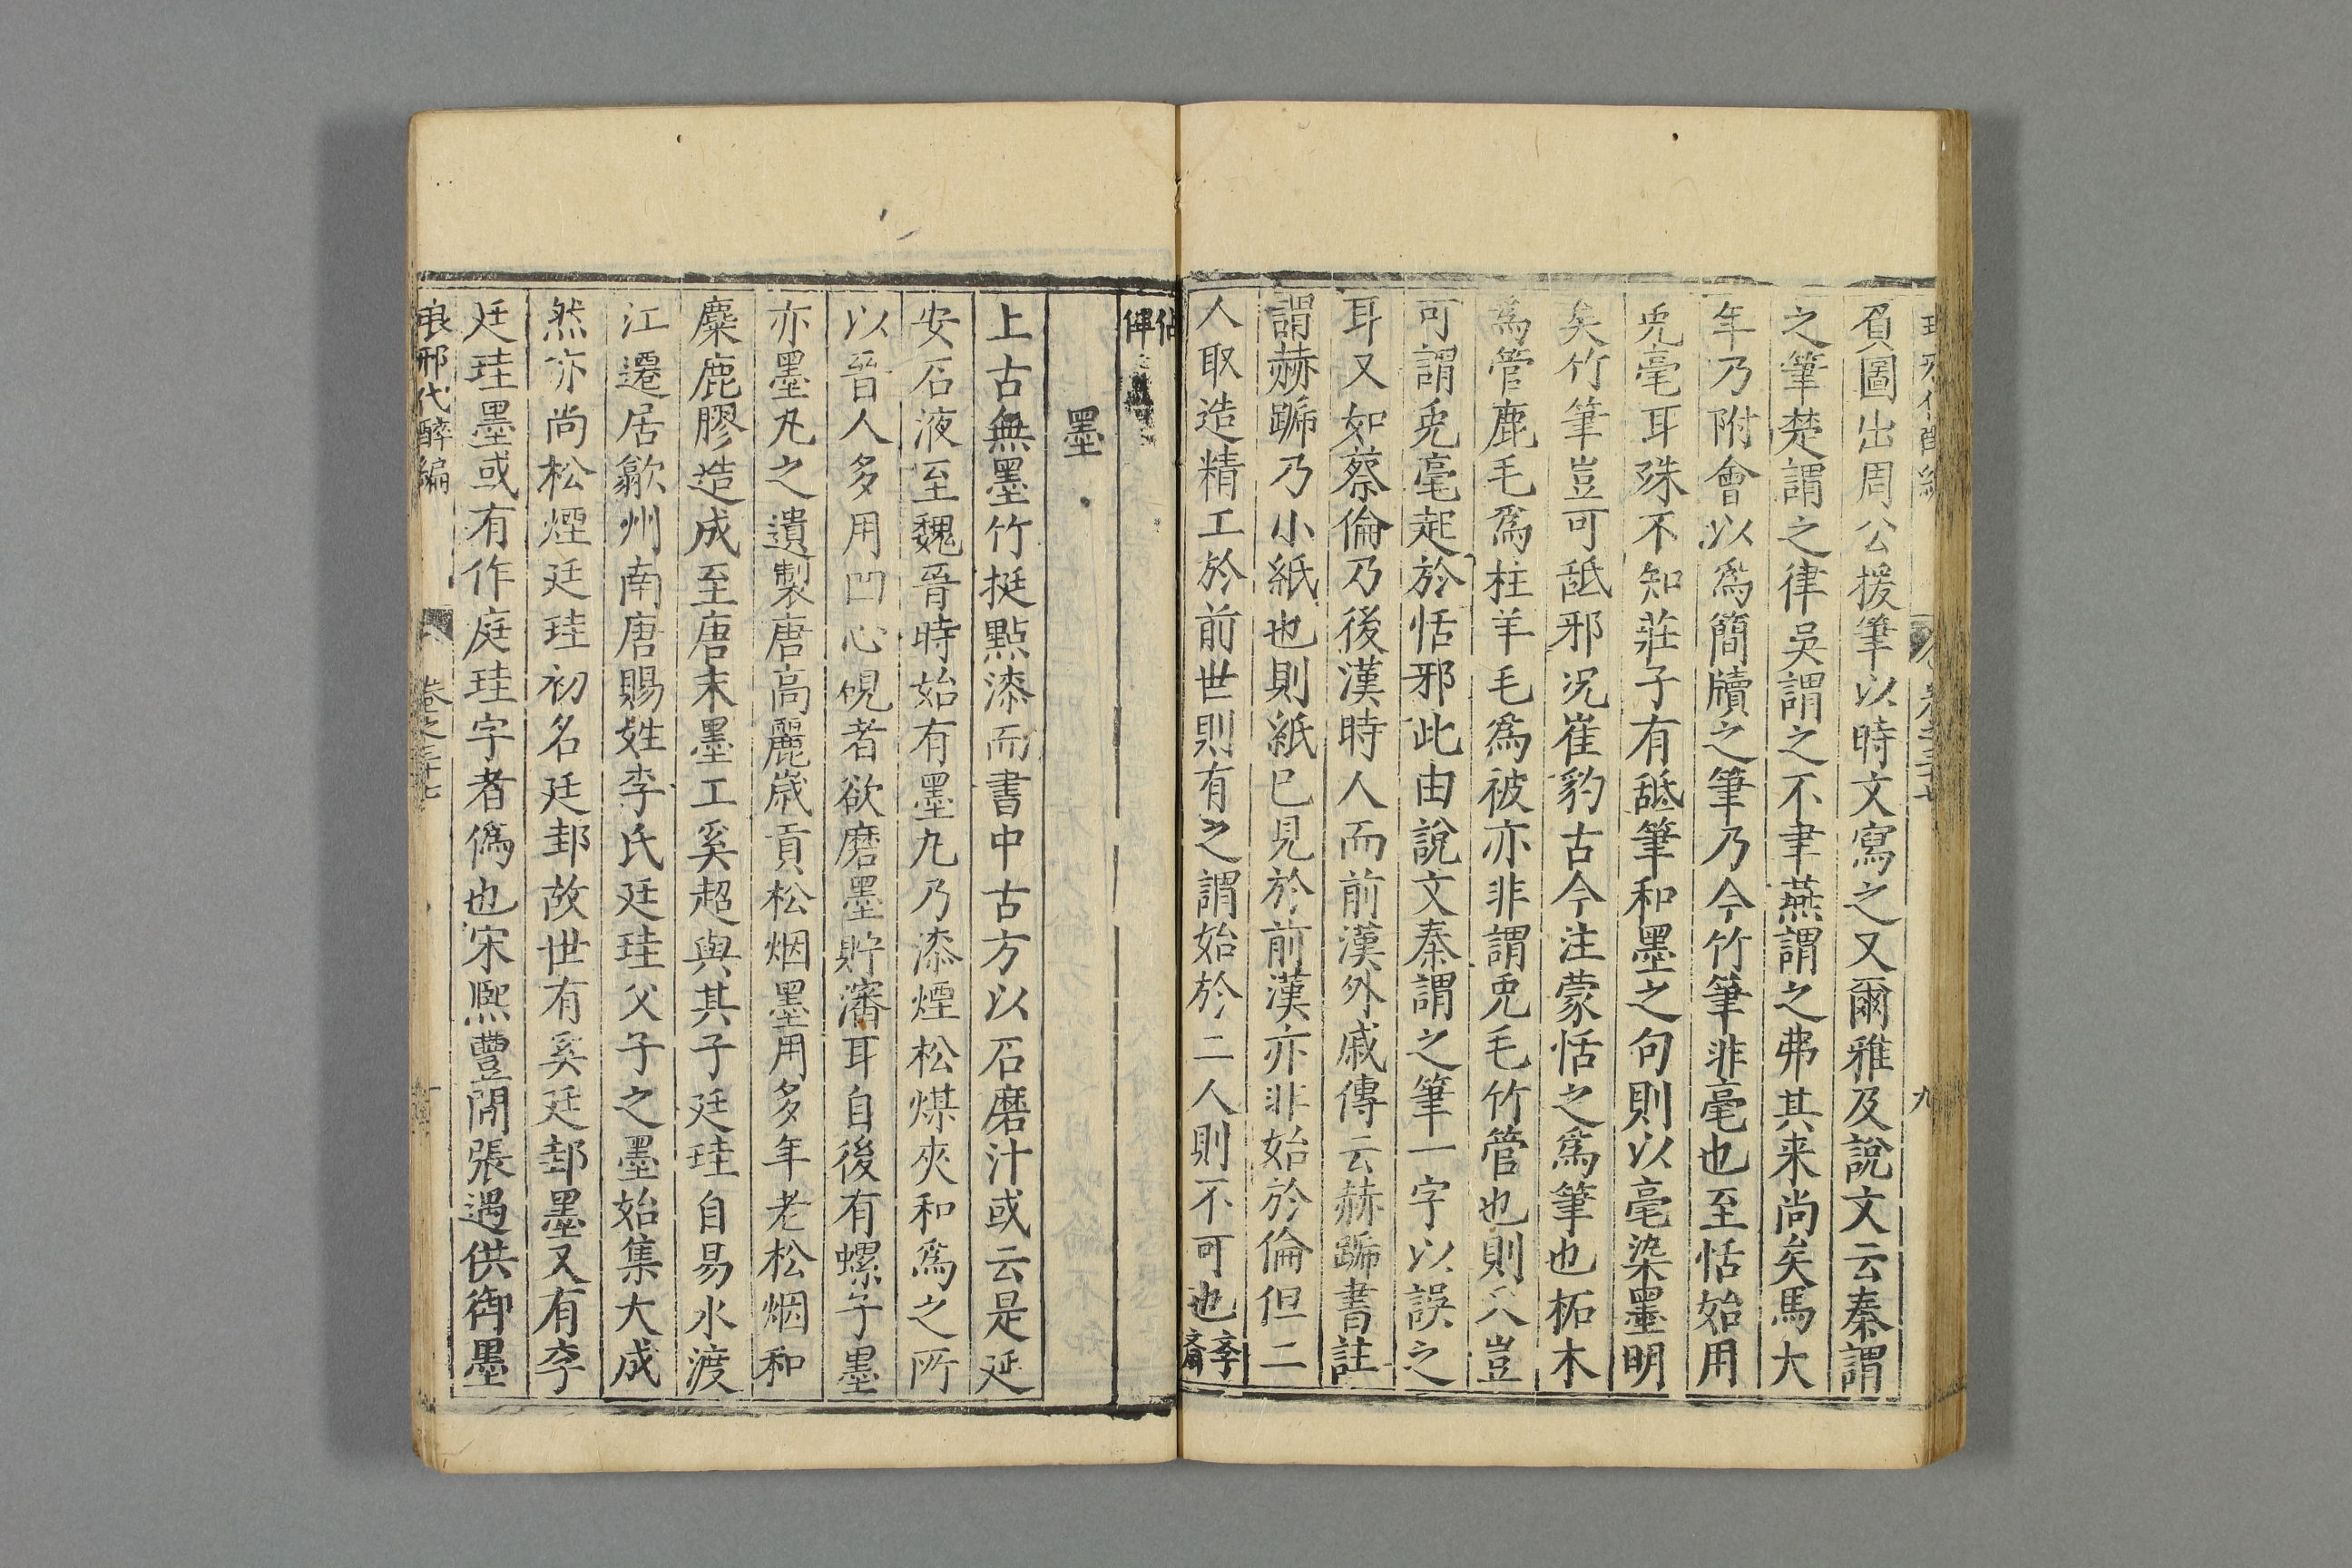 九
負圖出周公援筆以時文寫之又爾雅及說文云秦謂
之筆楚謂之律吳謂之不聿燕謂之弗其来尚矣馬大
年乃附會以爲簡牘之筆乃今竹筆非毫也至恬始用
兎毫耳殊不知莊子有舐筆和墨之句則以毫染墨明
矣竹筆豈可舐邪况崔豹古今注蒙恬之爲筆也柘木
爲管鹿毛爲柱羊毛爲被亦非謂兎毛竹管也則又豈
可謂兎毫起於恬邪此由說文秦謂之筆一字以誤之
耳又如蔡倫乃後漢時人而前漢外戚傳云赫蹏書註
謂赫蹏乃小紙也則紙已見於前漢亦非始於倫但二
人取造精工於前世則有之謂始於二人則不可也李
齋
墨
上古無墨竹挺點漆而書中古方以石磨汁或云是延
安石液至魏晉時始有墨九乃漆煙松煤夾和爲之所
以晉人多用凹心硯者欲磨墨貯瀋耳自後有螺子墨
亦墨丸之遺製唐高麗歲貢松烟墨用多年老松烟和
麋鹿膠造成至唐末墨工奚超與其子廷珪自易水渡
江遷居歙州南唐賜姓李氏廷珪父子之墨始集大成
然亦尚松煙廷珪初名廷邽故世有奚廷邽墨又有李
廷珪墨或有作庭珪字者僞也宋熙豐間張遇供御墨
琅邪代醉編 卷之三十七